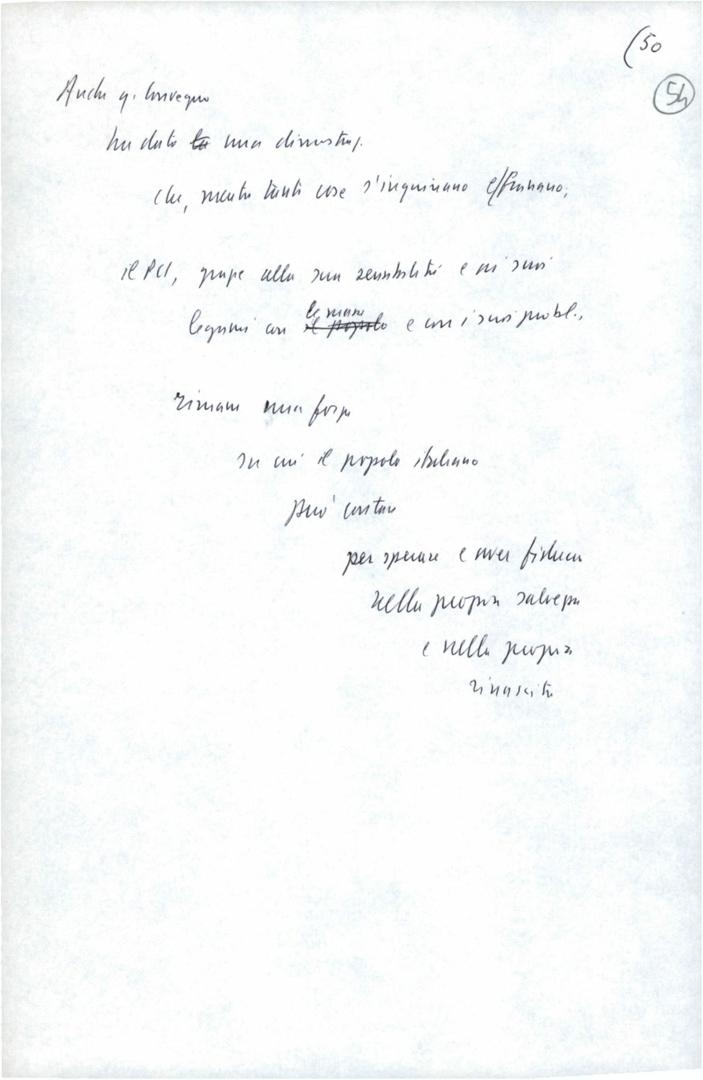 (50
54
Anche q. Convegno
ha dato la una dimostraz.
che, mentre tante cose s'inquinano e/o franano,
il PCI, grazie alla sua sensibilità e ai suoi
le masse
legami con il popolo e con i suoi probl.,
rimane una forza
su cui il popolo italiano
può contare
per sperare e aver fiducia
nella propria salvezza
e nella propria
rinascita